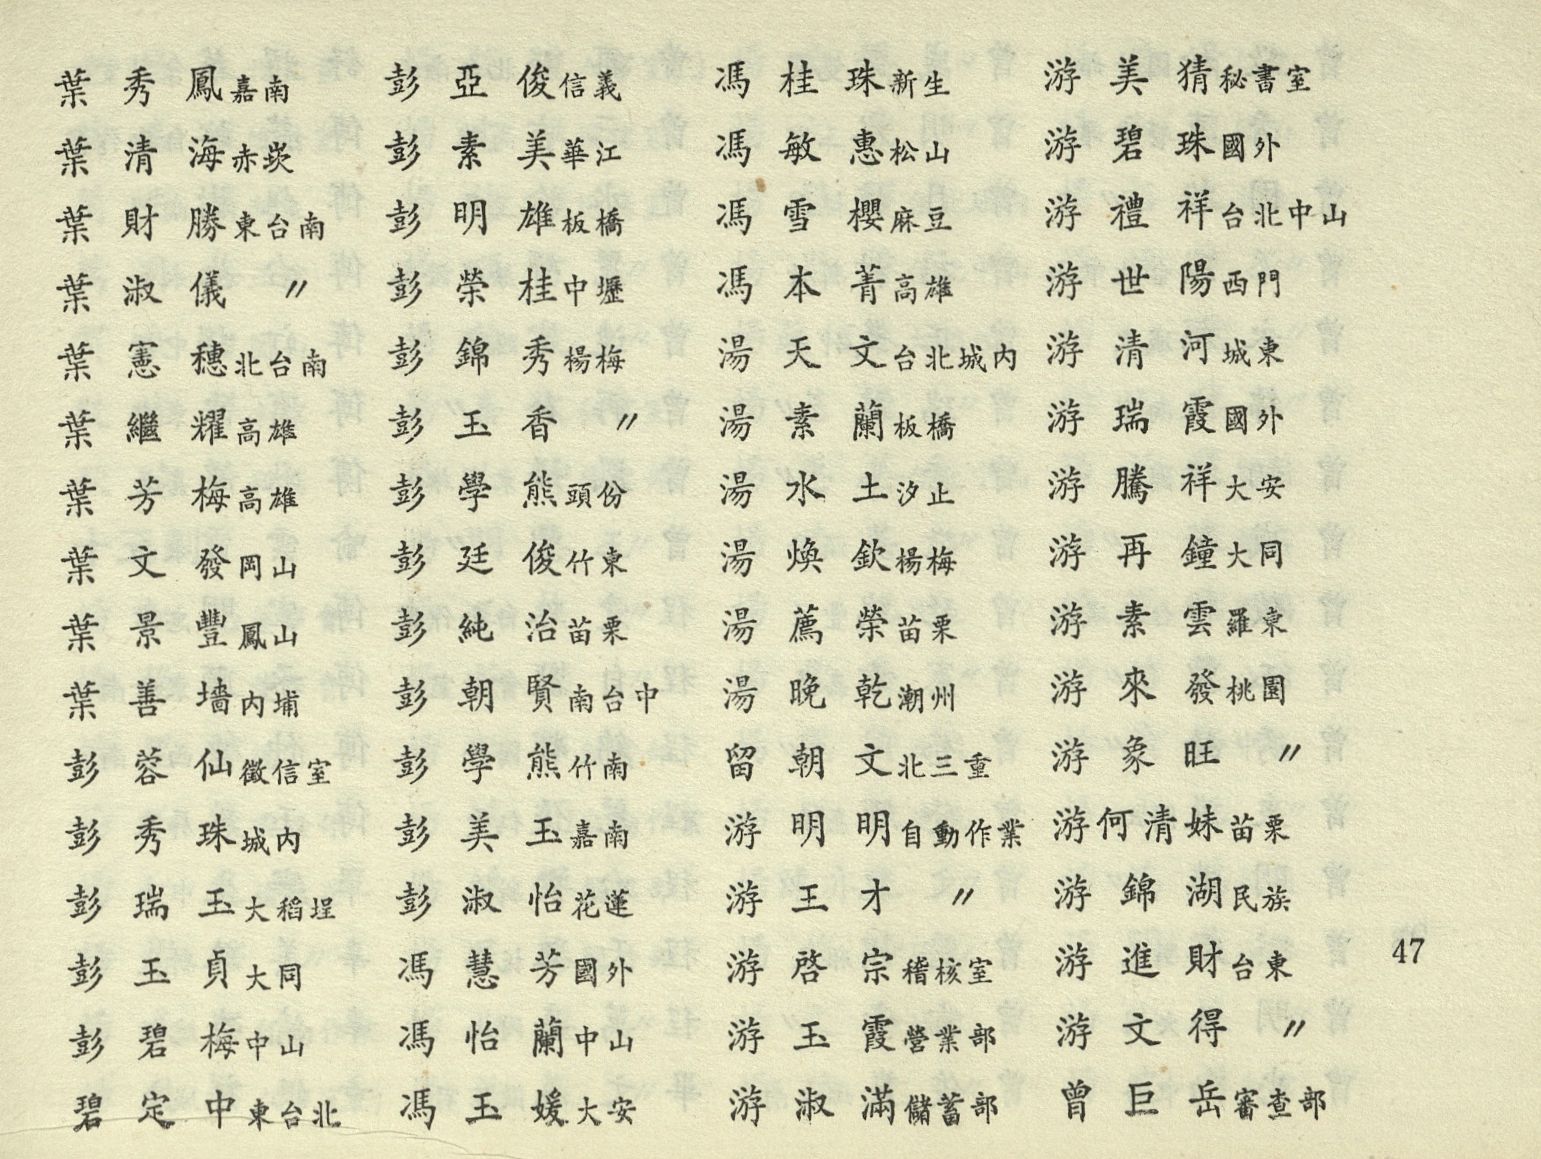 葉秀鳳嘉南
葉清海赤崁
葉財勝東台南
葉淑儀〃
葉憲穗北台南
葉繼耀高雄
葉芳梅高雄
葉文發岡山
葉景豐鳳山
葉善墻內埔
彭蓉仙徵信室
彭秀珠城內
彭瑞玉大稻埕
彭玉貞大同
彭碧梅中山
碧定中東台北
彭亞俊信義
彭素美華江
彭明雄板橋
彭榮桂中壢
彭錦秀楊梅
彭玉香〃
彭學熊頭份
彭廷俊竹東
彭純治苗栗
彭朝賢南台中
彭學熊竹南
彭美玉嘉南
彭淑怡花蓮
馮慧芳國外
馮怡蘭中山
馮玉媛大安
馮桂珠新生
馮敏惠松山
馮雪櫻麻豆
馮本菁高雄
湯天文台北城內
湯素蘭板橋
湯水土汐止
湯煥欽楊梅
湯薦榮苗栗
湯晚乾潮州
留朝文北三重
游明明自動作業
游王才〃
游啓宗稽核室
游玉霞營業部
游淑滿儲蓄部
游美猜秘書室
游碧珠國外
游禮祥台北中山
游世陽西門
游清河城東
游瑞霞國外
游騰祥大安
游再鐘大同
游素雲羅東
游來發桃園
游象旺〃
游何清妹苗栗
游錦湖民族
游進財台東
游文得〃
曾巨岳審查部
47